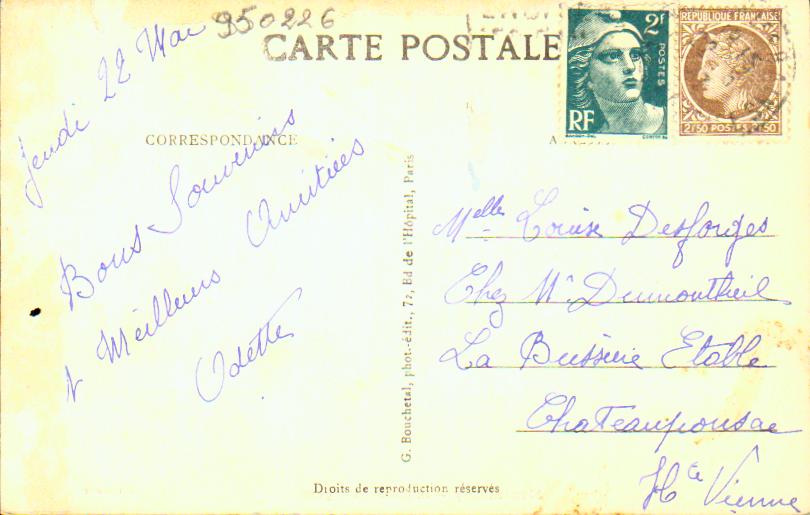 950226
CARTE POSTALE
2F
POSTES
RF
RÉPUBLIQUE FRANÇAISE
2F50 POSTES 2F50
CORRESPONDANCE
Jeudi 22 Mai
Bons Souvenirs
& Meilleurs Amitiées
Odette
G. Bouchetal, phot.-édit., 72, Bd de l'Hôpital, Paris
Melle Louise Desforges
Chez Mr Dumontheil
La Bussière Etable
Chateauponsac
Hte Vienne
Droits de reproduction réservés